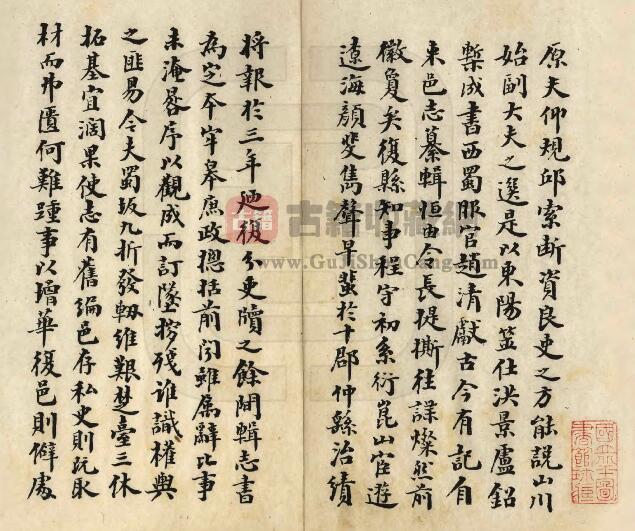 原夫仰規邱索斷資良史之方能說山川
始副大夫之選是以東陽筮仕洪景盧鉛
槧成書西蜀服官趙清獻古今有記自
來邑志纂輯恒由令長提撕往諜燦然前
徽夐矣復縣知事程守初系衍崑山宦遊
遼海顏斐雋聲早蜚於十郡仲繇治績
將報於三年廼復分吏牘之餘間輯志書
為定本牢皋庶政摠括前聞雖屬辭比事
未淹晷序以觀成而訂墜捃殘誰識權輿
之匪易今夫蜀坂九折發軔維艱楚臺三休
拓基宜濶果使志有舊編邑存私史則既取
材而弗匱何難踵事以增華復邑則僻處
國立北平圖
書館珍藏
www.GuJiShouCang.com